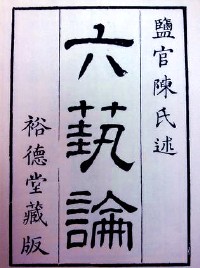 鹽官陳氏述
六蓺論
裕德堂藏版